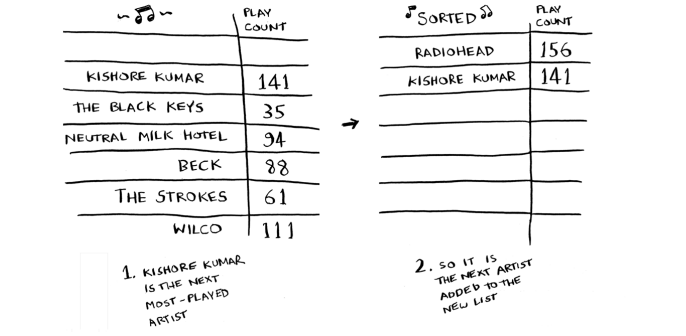 PLAY
COUNT
KISHORE KUMAR 141
THE BLACK KEYS 35
NEUTRAL MILK HOTEL 94
BECK 88
THE STROKES 61
WILCO 111
1. KISHORE KUMAR
IS THE NEXT
MOST-PLAYED
ARTIST
SORTED PLAY
COUNT
RADIOHEAD 156
KISHORE KUMAR 141
2. SO IT IS
THE NEXT ARTIST
ADDED TO THE
NEW LIST